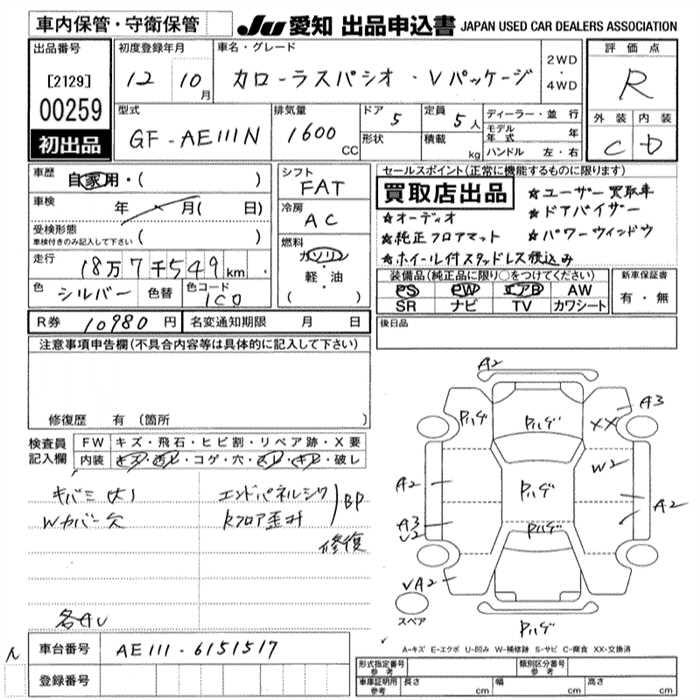 車内保管・守衛保管
JU 愛知 出品申込書 JAPAN USED CAR DEALERS ASSOCIATION
出品番号 初度登録年月 車名・グレード 評価点
[2129] 12 10月 カローラスパシオ・Vパッケージ 2WD・4WD R
00259
初出品
型式 排気量 ドア 5 定員 5人 ディーラー・並行 外装 内装
GF-AE111N 1600CC 形状 積載 kg モデル年式 年 C D
ハンドル 左・右
車歴 自家用・( ) シフト FAT セールスポイント(正常に機能するものに限ります)
買取店出品 ☆ユーザー買取車
車検 年 月( 日) 冷房 AC ☆オーディオ ☆ドアバイザー
受検形態 車検付きのみ記入して下さい ( ) ☆純正フロアマット ☆パワーウィンドウ
燃料 ガソリン 軽・油 ( ) ☆ホイール付スタッドレス積込み
走行 18万7千549km
装備品(純正品に限り○をつけてください) 新車保証書
色 シルバー 色替 色コード 1C0 PS PW エアB AW 有・無
SR ナビ TV カワシート
R券 10980円 名変通知期限 月 日 後日品
注意事項申告欄(不具合内容等は具体的に記入して下さい)
修復歴 有(箇所 )
検査員記入欄 FW キズ・飛石・ヒビ割・リペア跡・X要
内装 キズ・汚レ・コゲ・穴・スレ・キレ・破レ
キバミ 大
Wカバー欠
エンドパネルシワ
Rフロア歪み
BP
修復
各AU
A2
A3
XX
Pハゲ
Pハゲ
W2
Pハゲ
A2
A2
A3
U2
Pハゲ
VA2
スペア
Pハゲ
A-キズ E-エクボ U-凹み W-補修跡 S-サビ C-腐食 XX-交換済
車台番号 AE111-6151517
登録番号
形式指定番号 参考 類別区分番号 参考
車庫証明用 参考 長さ cm 幅 cm 高さ cm